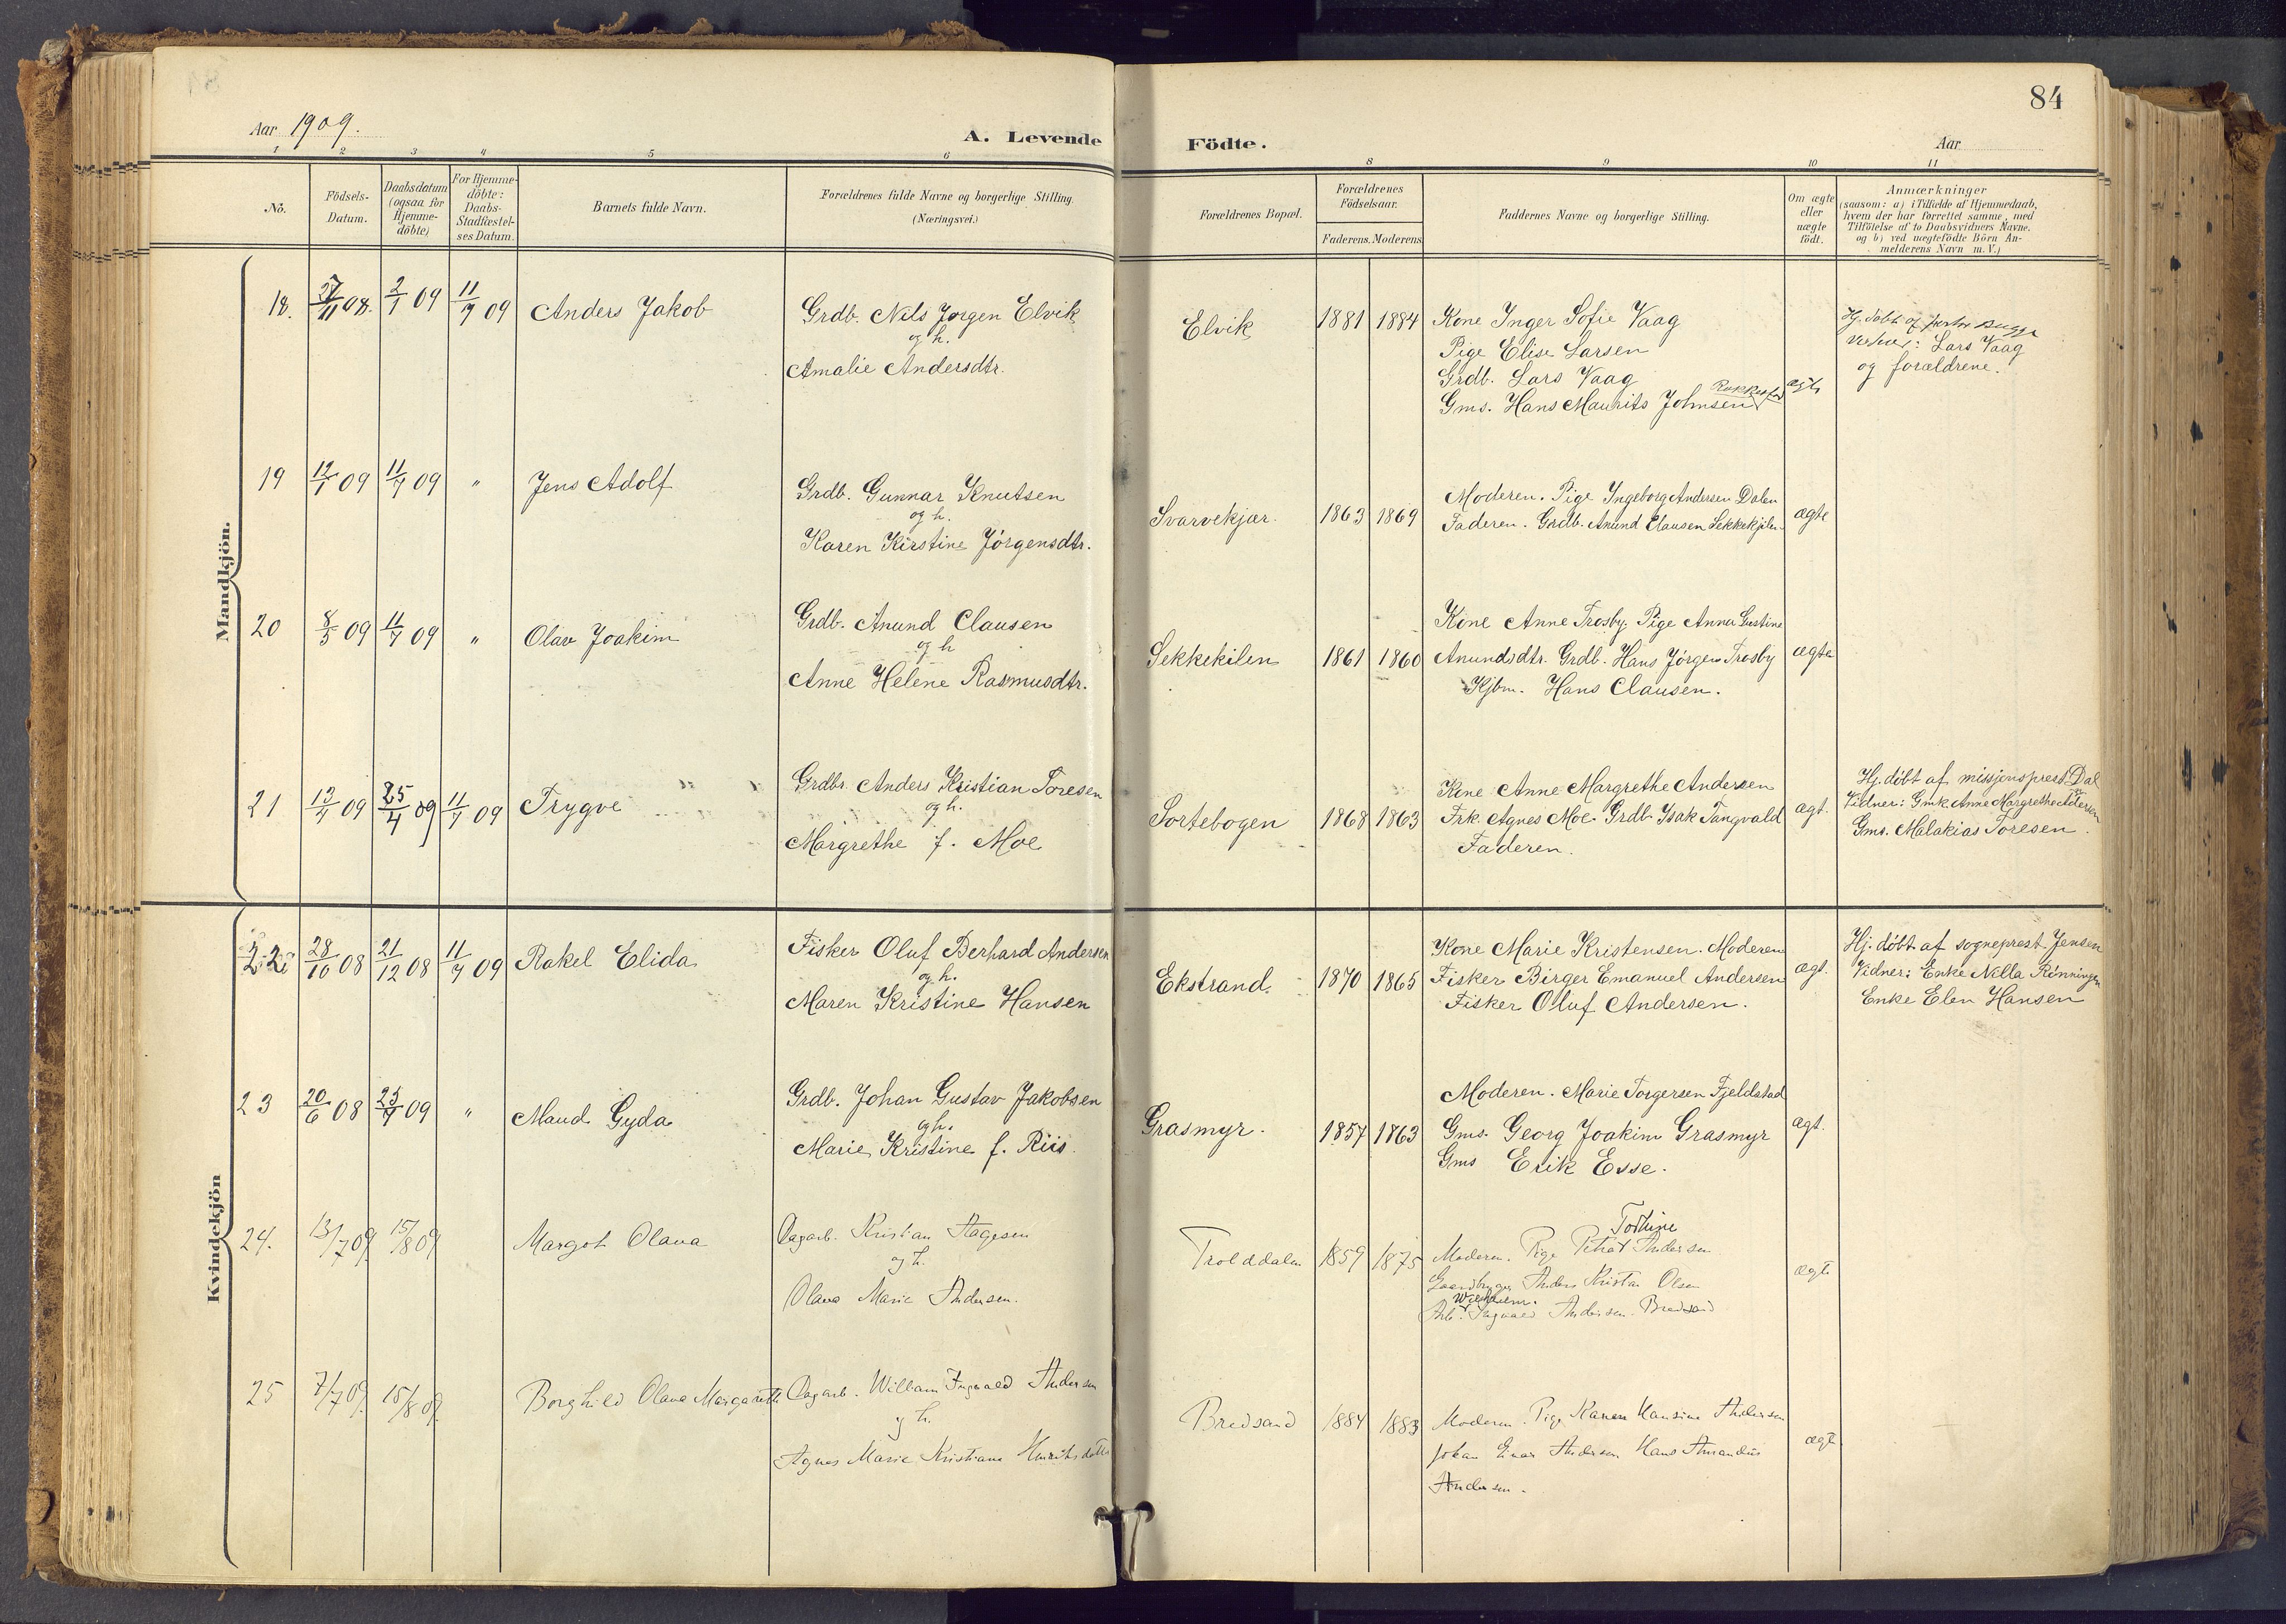 84
Aar 1909.
A. Levende Födte.
Aar
1 2 3 4 5 6 8 9 10 11
No.
Födsels-
Datum.
Daabsdatum
(ogsaa for
Hjemme-
döbte)
For Hjemme-
döbte:
Daabs-
Stadfæstel-
ses Datum.
Barnets fulde Navn.
Forældrenes fulde Navne og borgerlige Stilling.
(Næringsvei.)
Forældrenes Bopæl.
Forældrenes
Födselsaar.
Faderens. Moderens.
Faddernes Navne og borgerlige Stilling.
Om ægte
eller
uægte
født.
Anmærkninger
(saasom: a) i Tilfælde af Hjemmedaab,
hvem der har forrettet samme, med
Tilföielse af to Daabsvidners Navne.
og b) ved uægtefödte Börn An-
melderens Navn m.V.)
Mandkjön.
18. 27/11 08. 2/1 09 11/7 09 Anders Jakob
Grdb. Nils Jørgen Elvik
og h.
Amalie Andersdtr.
Elvik 1881 1884
Kone Inger Sofie Vaag
Pige Elise Larsen
Grdb. Lars Vaag
Gms. Hans Maurits Johnsen
ægte
Hj. døbt af
Lars Vaag
og forældrene.
19 12/1 09 11/7 09 " Jens Adolf
Grdb. Gunnar Knutsen
og h.
Karen Kirstine Jörgensdtr.
Svarvekjær. 1863 1869
Moderen. Pige Ingeborg Andersen Dalen
Faderen. Grdb. Anund Clausen Sekkekjilen
ægte
20 8/5 09 11/7 09 " Olav Joakim
Grdb. Anund Clausen
og h
Anne Helene Rasmusdtr.
Sekkekilen 1861 1860
Kone Anne Trosby. Pige Anna Gustine
Anundsdtr. Grdb. Hans Jörgen Trosby
Kjbm. Hans Clausen.
ægte
21 13/4 09 25/4 09) 11/7 09 Trygve
Grdbr. Anders Kristian Toresen
og h.
Margrethe f. Moe
Sortebogen 1868 1863
Kone Anne Margrethe Andersen
Frk. Agnes Moe Grdb. Isak Tangvald
Faderen.
ægt.
Hj. döbt af missjonsprest Dal
Vidner: Gmk Anne Margrethe Andersen
Gms. Malakias Toresen.
Kvindekjön
22 28/10 08 21/12 08 11/7 09 Rakel Elida
Fisker Oluf Berhard Andersen
og h.
Maren Kristine Hansen
Ekstrand. 1870 1865
Kone Marie Kristensen. Moderen
Fisker Birger Emanuel Andersen
Fisker Oluf Andersen.
ægt.
Hj. döbt af sogneprest Jensen
Vidner: Enke Nella Rönningen
Enke Elen Hansen
23 20/6 08 25/7 09 " Maud Gyda
Grdb. Johan Gustav Jakobsen
og h.
Marie Kristine f. Riis.
Grasmyr. 1857 1863
Moderen. Marie Torgersen Fjeldstad
Gms. Georg Joakim Grasmyr
Gms Erik Esse.
ægt.
24. 13/7 09. 15/8 09 Margot Olava
Dagarb. Kristian Aagesen
og h.
Olava Marie Andersen.
Trolddalen 1859 1875
Torhine
Moderen. Pige Petra Andersen
Gaardbruger Anders Kristian Olsen
Wilhelm.
Arb. Ingvald Andersen Bredsand
ægte
25 7/7 09. 15/8 09. Borghild Olava Margareth
Dagarb. William Ingvald Andersen
og h.
Agnes Marie Kristiane Henriksdatter
Bredsand 1884 1883
Moderen. Pige Karen Hansine Andersen
Johan Einar Andersen Hans Amandus
Andersen.
ægte